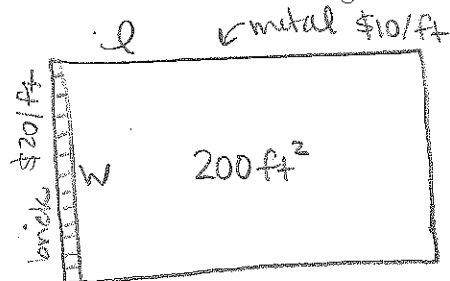 l
metal $10/ft
brick $20/ft
W
200 ft²